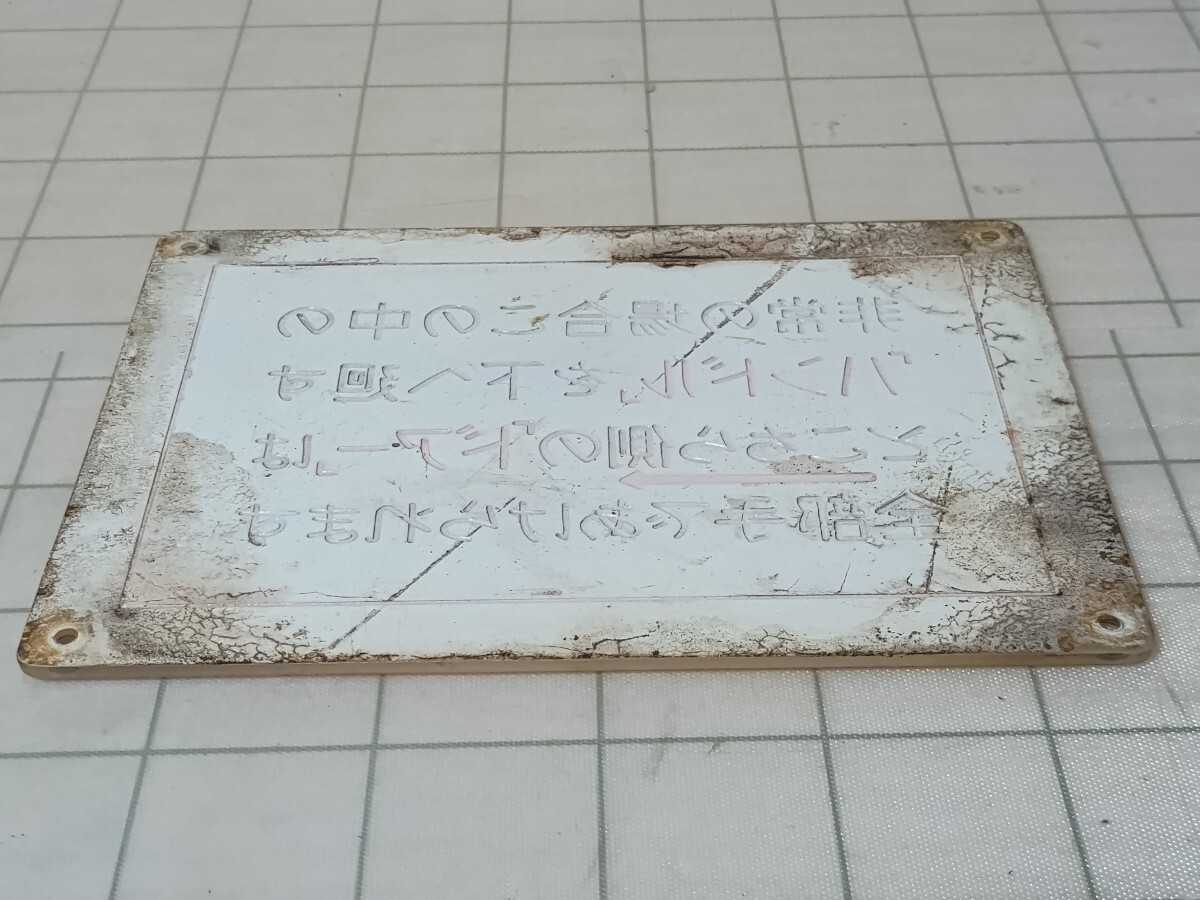 非常の場合この中の
「ハンドル」を下へ廻す
とこちら側の「ドアー」は
全部手であけられます